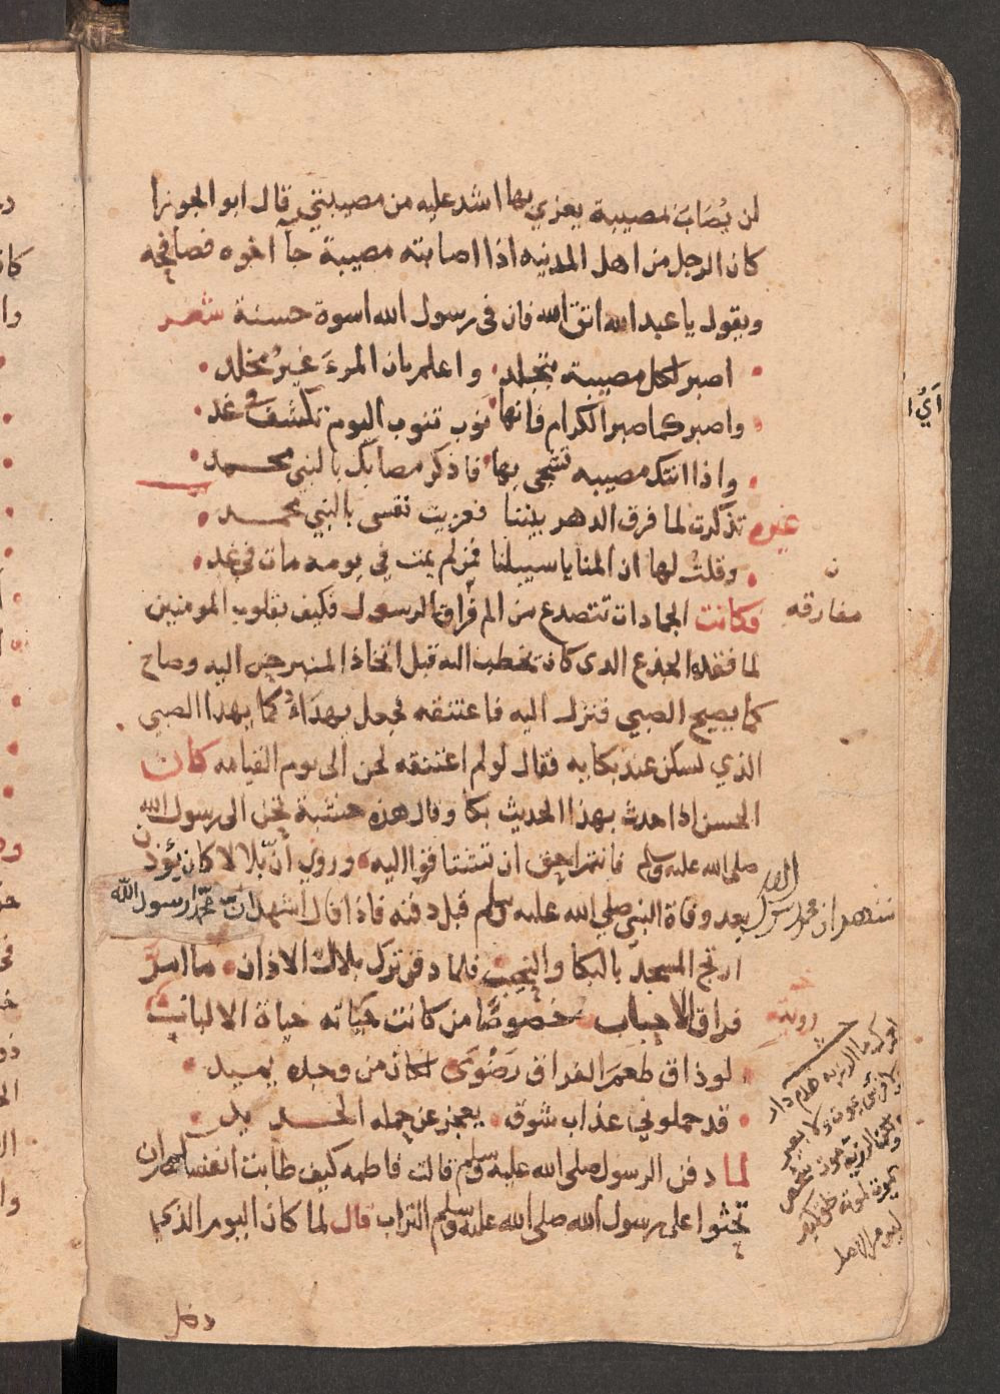 لن يُصَابَ بمصيبة يعزي بها اشد عليه من مصيبتي قال ابو الجوزا
كان الرجل من اهل المدينه اذا اصابته مصيبة جآ اخوه فصافحه
ويقول يا عبد الله اتق الله فان فى رسول الله اسوة حسنة شعر
اصبر لكل مصيبة وتجلد • واعلم بان المرءَ غيرُ مخلد •
واصبر كما صبر الكرام فانها • نوب تنوب اليوم تكشف في غد •
واذا اتتك مصيبه تشجى بها • فاذكر مصابك بالنبي محمد •
غيره تذكرت لما فرق الدهر بيننا فعزيت نفسى بالنبي محمد •
وقلتُ لها ان المنايا سبيلنا فمن لم يمت في يومه مات في غد •
فكانت الجمادات تتصدع من الم فراق الرسول فكيف بقلوب المومنين
ن
مفارقه
لما فقده الجذع الدى كان يخطب اليه قبل اتخاذ المنبر حن اليه وصاح
كما يصيح الصبي فنزل اليه فاعتنقه فجعل يهدَاءُ كما يهدا الصبي
الذي يسكن عند بكايه فقال لو لم اعتنقه لحن الى يوم القيامه كان
الحسن اذا حدث بهذا الحديث بكا وقال هذه خشبة تحن الى رسول الله
صلى الله عليه وسلم فانتم احق ان تشتاقوا اليه • وروي انّ بلالا كان يؤذن
بعد وفاة النبي صلى الله عليه وسلم قبل دفنه فاذا قال اشهد ان محمّدا رسول الله
اشهد ان محمد رسول الله
ارتج المسجد بالبكا والنحيب فلما دفن ترك بلال الاذان • ما امرّ
فراق الاحباب خصوصًا من كانت حياته حياة الالباب
لو ذاق طعم الفراق رَضْوَى لكان من وجده يميد •
قد حملوني عذاب شوق • يعجز عن حمله الحديد •
لما دفن الرسول صلى الله عليه وسلم قالت فاطمه كيف طابت انفسكم ان
تحثوا على رسول الله صلى الله عليه وسلم التراب قال لما كان اليوم الذى
دخل